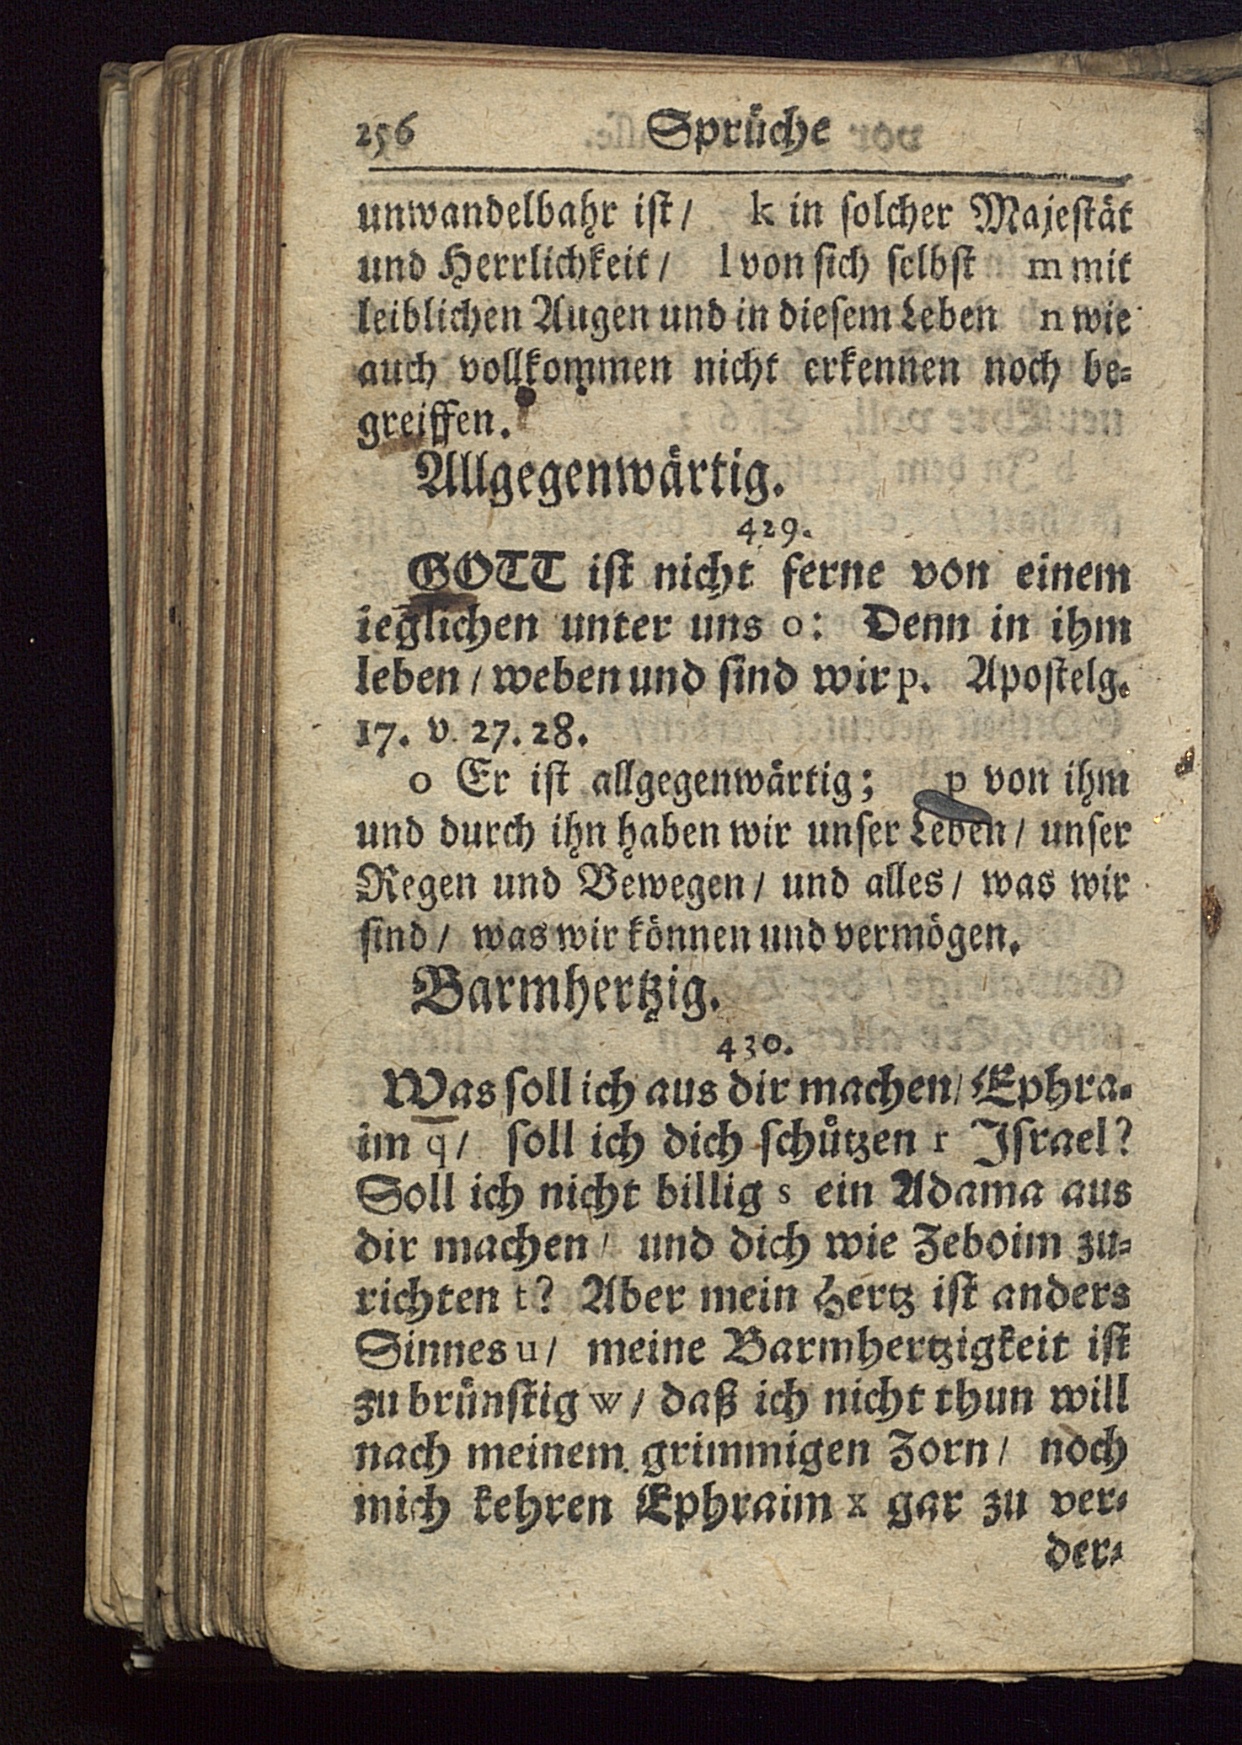 256 Sprüche
unwandelbahr ist/ k in solcher Majestät
und Herrlichkeit/ l von sich selbst m mit
leiblichen Augen und in diesem Leben n wie
auch vollkommen nicht erkennen noch be-
greiffen.
Allgegenwärtig.
429.
GOTT ist nicht ferne von einem
ieglichen unter uns o: Denn in ihm
leben/ weben und sind wir p. Apostelg.
17. v. 27. 28.
o Er ist allgegenwärtig; p von ihm
und durch ihn haben wir unser Leben/ unser
Regen und Bewegen/ und alles/ was wir
sind/ was wir können und vermögen.
Barmhertzig.
430.
Was soll ich aus dir machen/ Ephra-
im q/ soll ich dich schützen r Israel?
Soll ich nicht billig s ein Adama aus
dir machen/ und dich wie Zeboim zu-
richten t? Aber mein Hertz ist anders
Sinnes u/ meine Barmhertzigkeit ist
zu brünstig w/ daß ich nicht thun will
nach meinem grimmigen Zorn/ noch
mich kehren Ephraim x gar zu ver-
der-